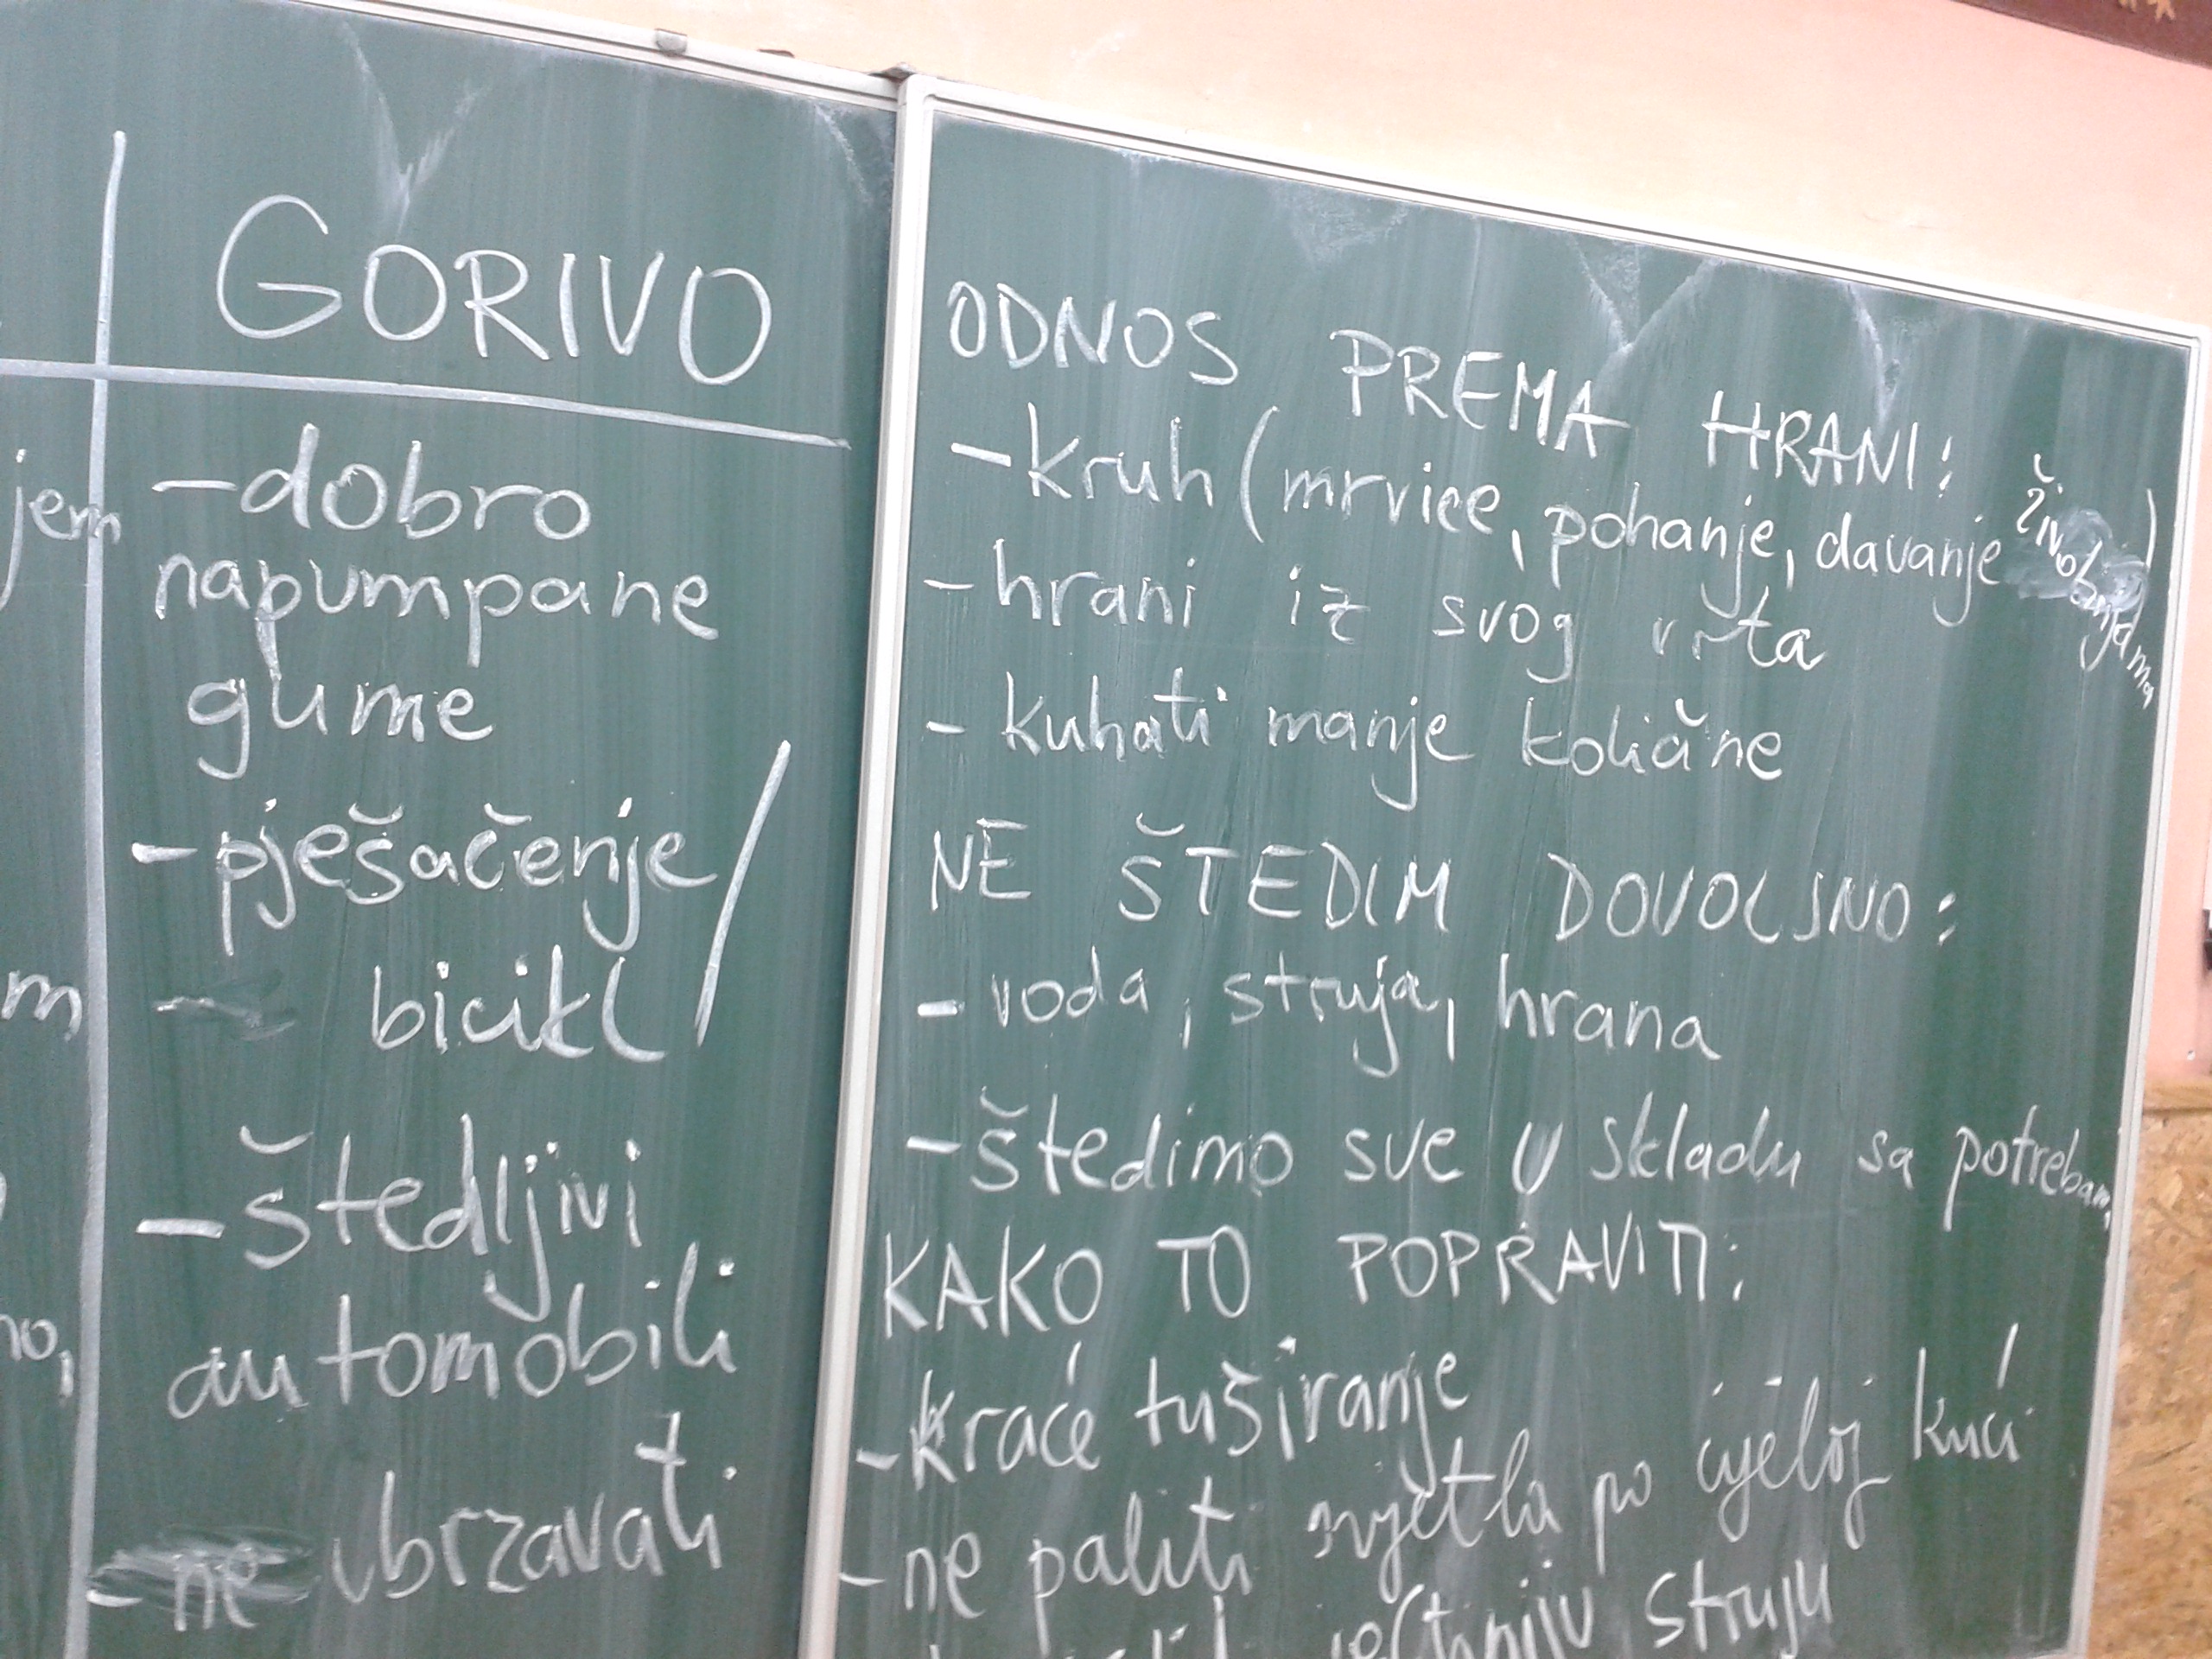 GORIVO
jem
-dobro
napumpane
gume
-pješačenje/
m
bicikl
-štedljivi
no,
automobili
-ne ubrzavati
ODNOS PREMA HRANI:
-kruh (mrvice, pohanje, davanje životinjama)
-hrani iz svog vrta
-kuhati manje količne
NE ŠTEDIM DOVOLJNO:
-voda, struja, hrana
-štedimo sve u skladu sa potrebama
KAKO TO POPRAVITI:
-kraće tuširanje
-ne paliti svjetla po cijeloj kući
jeftiniju struju